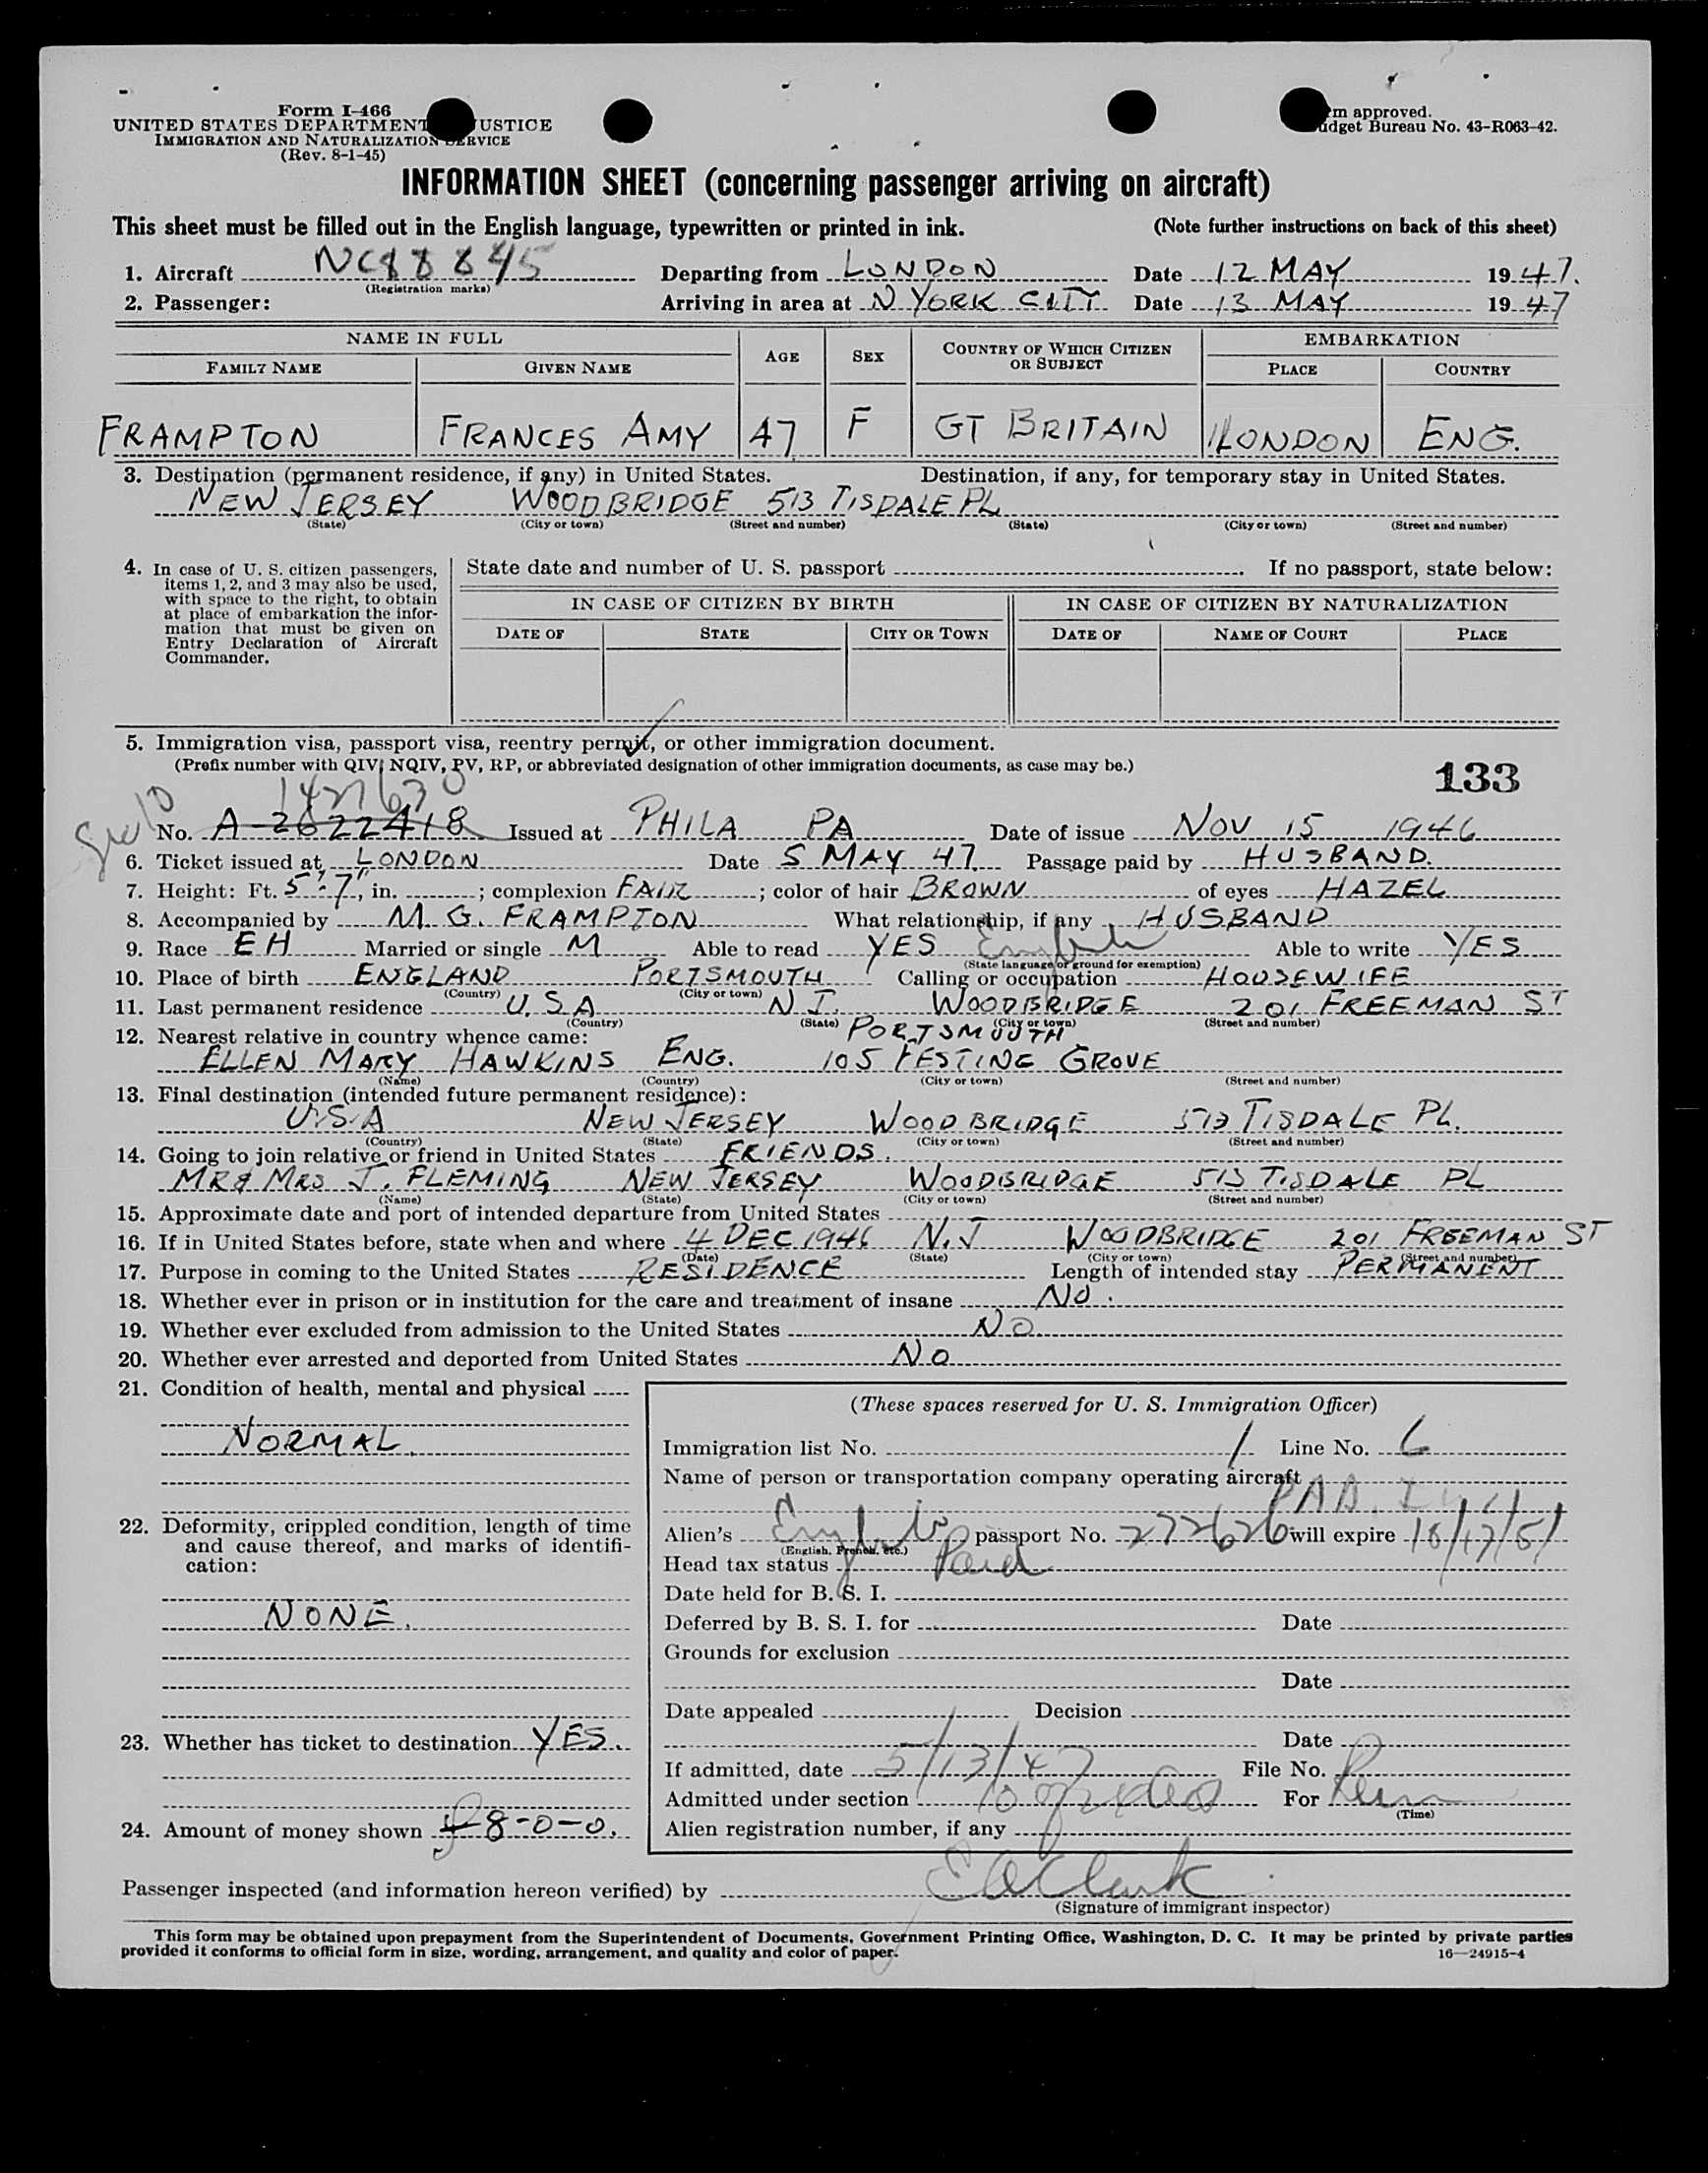 Form I-466
UNITED STATES DEPARTMENT USTICE
IMMIGRATION AND NATURALIZATION SERVICE
(Rev. 8-1-45)
m approved.
udget Bureau No. 43-R063-42.
INFORMATION SHEET (concerning passenger arriving on aircraft)
This sheet must be filled out in the English language, typewritten or printed in ink. (Note further instructions on back of this sheet)
1. Aircraft NC88845 Departing from LONDON Date 12 MAY 1947.
(Registration marks)
2. Passenger: Arriving in area at N YORK CITY Date 13 MAY 1947
NAME IN FULL AGE SEX COUNTRY OF WHICH CITIZEN OR SUBJECT EMBARKATION
FAMILY NAME GIVEN NAME PLACE COUNTRY
FRAMPTON FRANCES AMY 47 F GT BRITAIN LONDON ENG.
3. Destination (permanent residence, if any) in United States. Destination, if any, for temporary stay in United States.
NEW JERSEY WOODBRIDGE 513 TISDALE PL
(State) (City or town) (Street and number) (State) (City or town) (Street and number)
4. In case of U. S. citizen passengers,
items 1, 2, and 3 may also be used,
with space to the right, to obtain
at place of embarkation the infor-
mation that must be given on
Entry Declaration of Aircraft
Commander.
State date and number of U. S. passport If no passport, state below:
IN CASE OF CITIZEN BY BIRTH IN CASE OF CITIZEN BY NATURALIZATION
DATE OF STATE CITY OR TOWN DATE OF NAME OF COURT PLACE
5. Immigration visa, passport visa, reentry permit, or other immigration document.
(Prefix number with QIV, NQIV, PV, RP, or abbreviated designation of other immigration documents, as case may be.)
133
1427630
No. A-2622418 Issued at PHILA PA Date of issue NOV 15 1946
6. Ticket issued at LONDON Date 5 MAY 47. Passage paid by HUSBAND.
7. Height: Ft. 5'-7", in. ; complexion FAIR ; color of hair BROWN of eyes HAZEL
8. Accompanied by M. G. FRAMPTON What relationship, if any HUSBAND
9. Race EH Married or single M Able to read YES English Able to write YES
(State language or ground for exemption)
10. Place of birth ENGLAND PORTSMOUTH Calling or occupation HOUSEWIFE
(Country) (City or town)
11. Last permanent residence U.S.A N.J. WOODBRIDGE 201 FREEMAN ST
(Country) (State) (City or town) (Street and number)
12. Nearest relative in country whence came: PORTSMOUTH
ELLEN MARY HAWKINS ENG. 105 FESTING GROVE
(Name) (Country) (City or town) (Street and number)
13. Final destination (intended future permanent residence):
U.S.A NEW JERSEY WOODBRIDGE 513 TISDALE PL.
(Country) (State) (City or town) (Street and number)
14. Going to join relative or friend in United States FRIENDS.
MR & MRS J. FLEMING NEW JERSEY WOODBRIDGE 513 TISDALE PL
(Name) (State) (City or town) (Street and number)
15. Approximate date and port of intended departure from United States
16. If in United States before, state when and where 4 DEC 1946 N.J WOODBRIDGE 201 FREEMAN ST
(Date) (State) (City or town) (Street and number)
17. Purpose in coming to the United States RESIDENCE Length of intended stay PERMANENT
18. Whether ever in prison or in institution for the care and treatment of insane NO.
19. Whether ever excluded from admission to the United States NO
20. Whether ever arrested and deported from United States NO
21. Condition of health, mental and physical
NORMAL.
22. Deformity, crippled condition, length of time
and cause thereof, and marks of identifi-
cation:
NONE.
23. Whether has ticket to destination YES.
24. Amount of money shown £8-0-0.
(These spaces reserved for U. S. Immigration Officer)
Immigration list No. 1 Line No. 6
Name of person or transportation company operating aircraft
PAA
Alien's English passport No. 272626 will expire 10/17/51
(English, French, etc.)
Head tax status Paid
Date held for B. S. I.
Deferred by B. S. I. for Date
Grounds for exclusion
Date
Date appealed Decision
Date
If admitted, date 5/13/47 File No.
Admitted under section For Perm
(Time)
Alien registration number, if any
Passenger inspected (and information hereon verified) by E A Clark
(Signature of immigrant inspector)
This form may be obtained upon prepayment from the Superintendent of Documents, Government Printing Office, Washington, D. C. It may be printed by private parties
provided it conforms to official form in size, wording, arrangement, and quality and color of paper. 16—24915-4